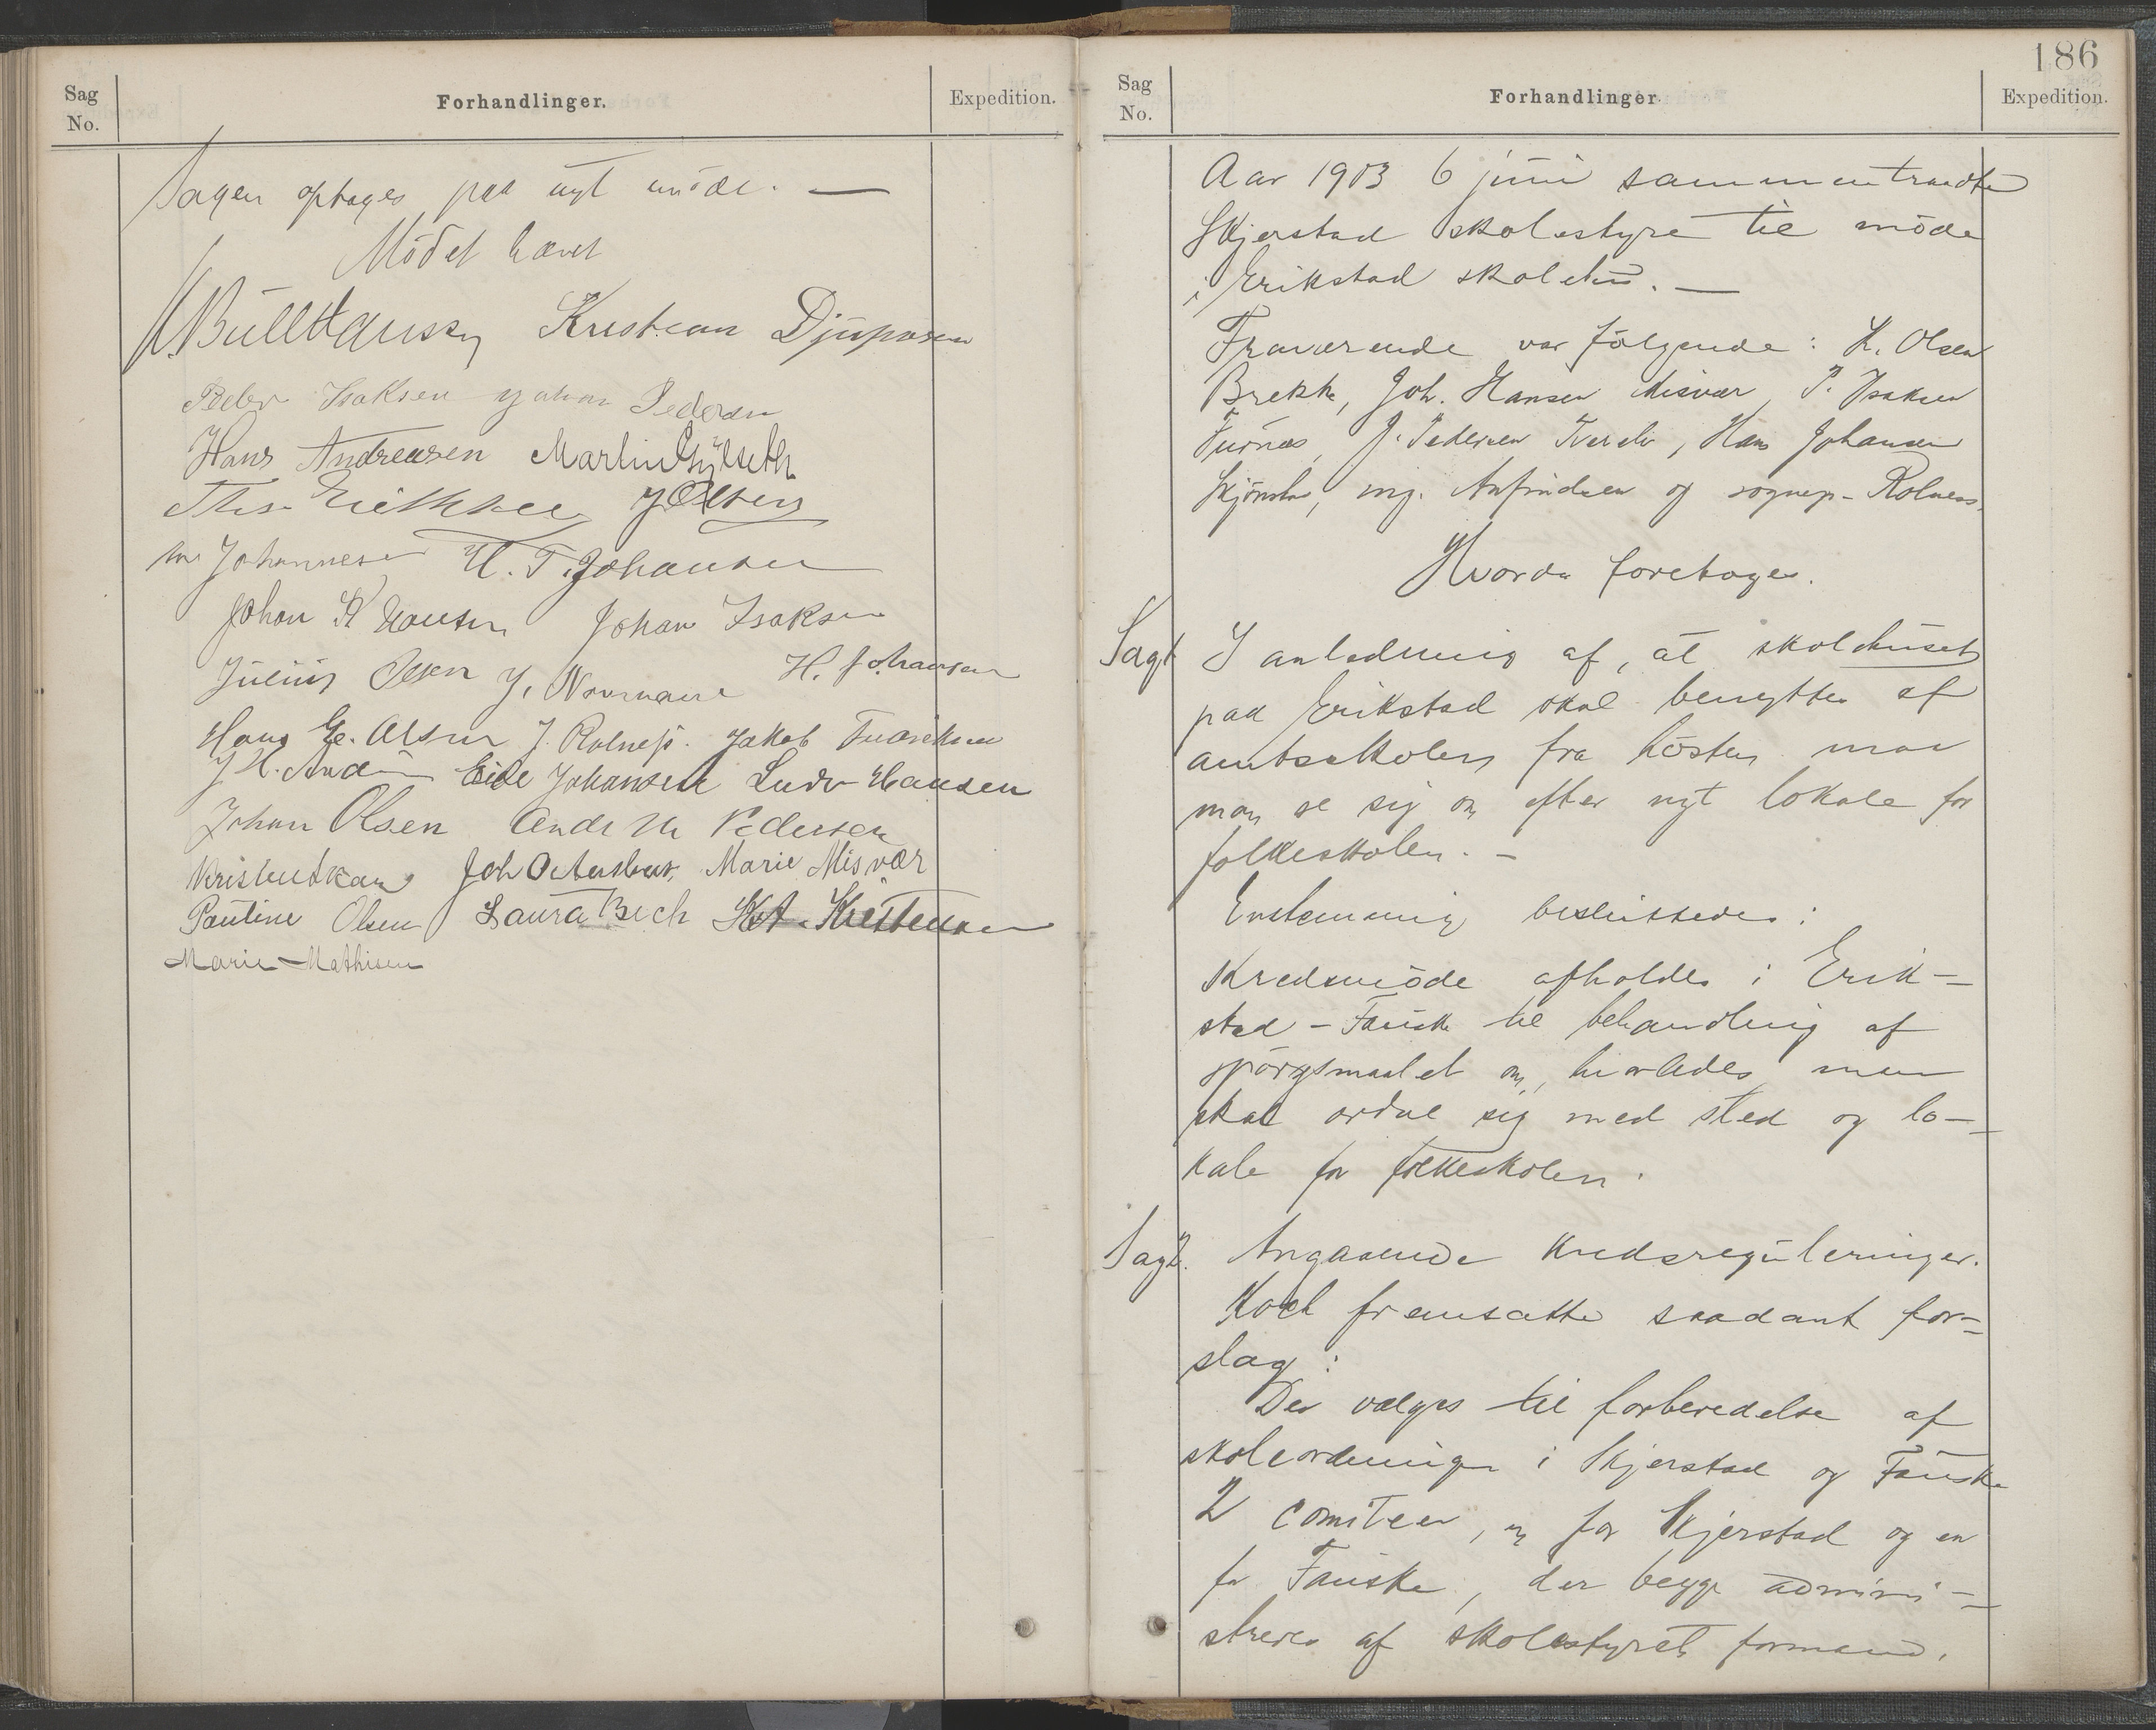 Sag
No.
Forhandlinger.
Expedition.
Sagen optages paa nyt møde. —
Mødet hævet
Bull Hansen Kristian Djuposen
Peder Isaksen Johan Pedersen
Hans Andreasen Martin Gylseth
J Olsen
Johannesen H. T. Johansen
Johan Hansen Johan Isaksen
Julius Olsen J. Normann H. Johansen
Hans E. Olsen J. Rolness. Jakob Fredriksen
Eide Johansen Ludv Hansen
Johan Olsen Pedersen
Joh Marie Misvær
Pauline Olsen Laura Bech Kristensen
Marie Mathisen
186
Sag
No.
Forhandlinger
Expedition.
Aar 1903 6 juni sammentraadte
Skjerstad skolestyre til møde
i Erikstad skolehus. —
Fraværende var følgende: K. Olsen
Brekke, Joh. Hansen Misvær, P. Isaksen
Furnes, J. Pedersen Tverelv, Hans Johansen
Skjønstu, ing. Anfindsen og sognep. Rolness.
Hvorda foretoges.
Sag 1 I anledning af, at skolehuset
paa Erikstad skal benyttes af
amtsskolen fra høsten maa
man se sig om efter nyt lokale for
folkeskolen. —
Enstemmig besluttedes:
Kredsmøde afholdes i Erik-
stad - Fauske til behandling af
spørgsmaalet om, hvorledes man
skal ordne sig med sted og lo-
kale for folkeskolen.
Sag 2. Angaaende kredsreguleringer.
Koch fremsatte saadant for-
slag:
Der vælges til forberedelse af
skoleordningen i Skjerstad og Fauske
2 comiteer, en for Skjerstad og en
for Fauske, der begge admini-
streres af skolestyrets formand.